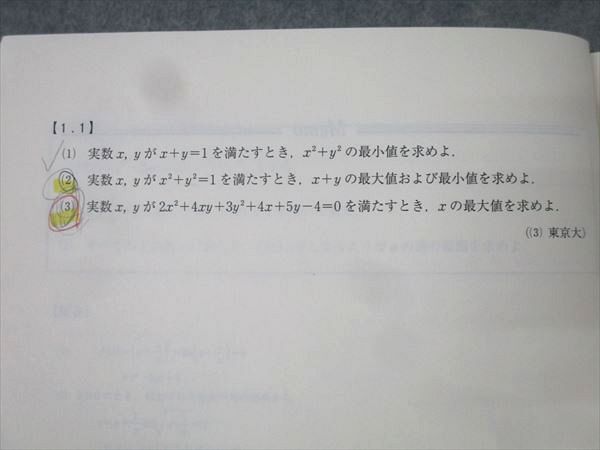 【1.1】
(1) 実数x, yがx+y=1を満たすとき，x²+y²の最小値を求めよ．
(2) 実数x, yがx²+y²=1を満たすとき，x+yの最大値および最小値を求めよ．
(3) 実数x, yが2x²+4xy+3y²+4x+5y−4=0を満たすとき，xの最大値を求めよ．
((3) 東京大)